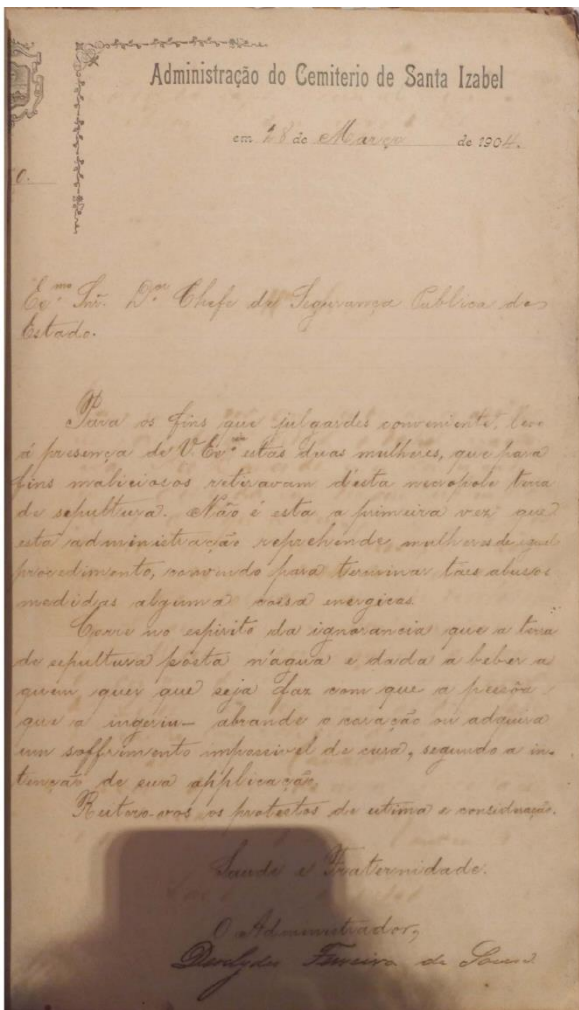 Administração do Cemiterio de Santa Izabel
em 28 de Março de 1904.
Ex.mo Snr. D.or Chefe da Segurança Publica do
Estado.
Para os fins que julgardes conveniente, levo
á presença de V. Ex.cia estas duas mulheres, que para
fins maliciosos retiravam d'esta necropole terra
de sepultura. Não é esta a primeira vez que
esta administração reprehende mulheres de igual
procedimento, convindo para terminar taes abusos
medidas alguma cousa energicas
Corre no espirito da ignorancia que a terra
de sepultura posta n'agua e dada a beber a
quem quer que seja faz com que a pessôa
que a ingeriu abrande o coração ou adquira
um soffrimento impossivel de cura, segundo a in-
tenção de sua applicação.
Reitero-vos os protestos de estima e consideração.
Saude e Fraternidade.
O Administrador,
Ferreira de Souza